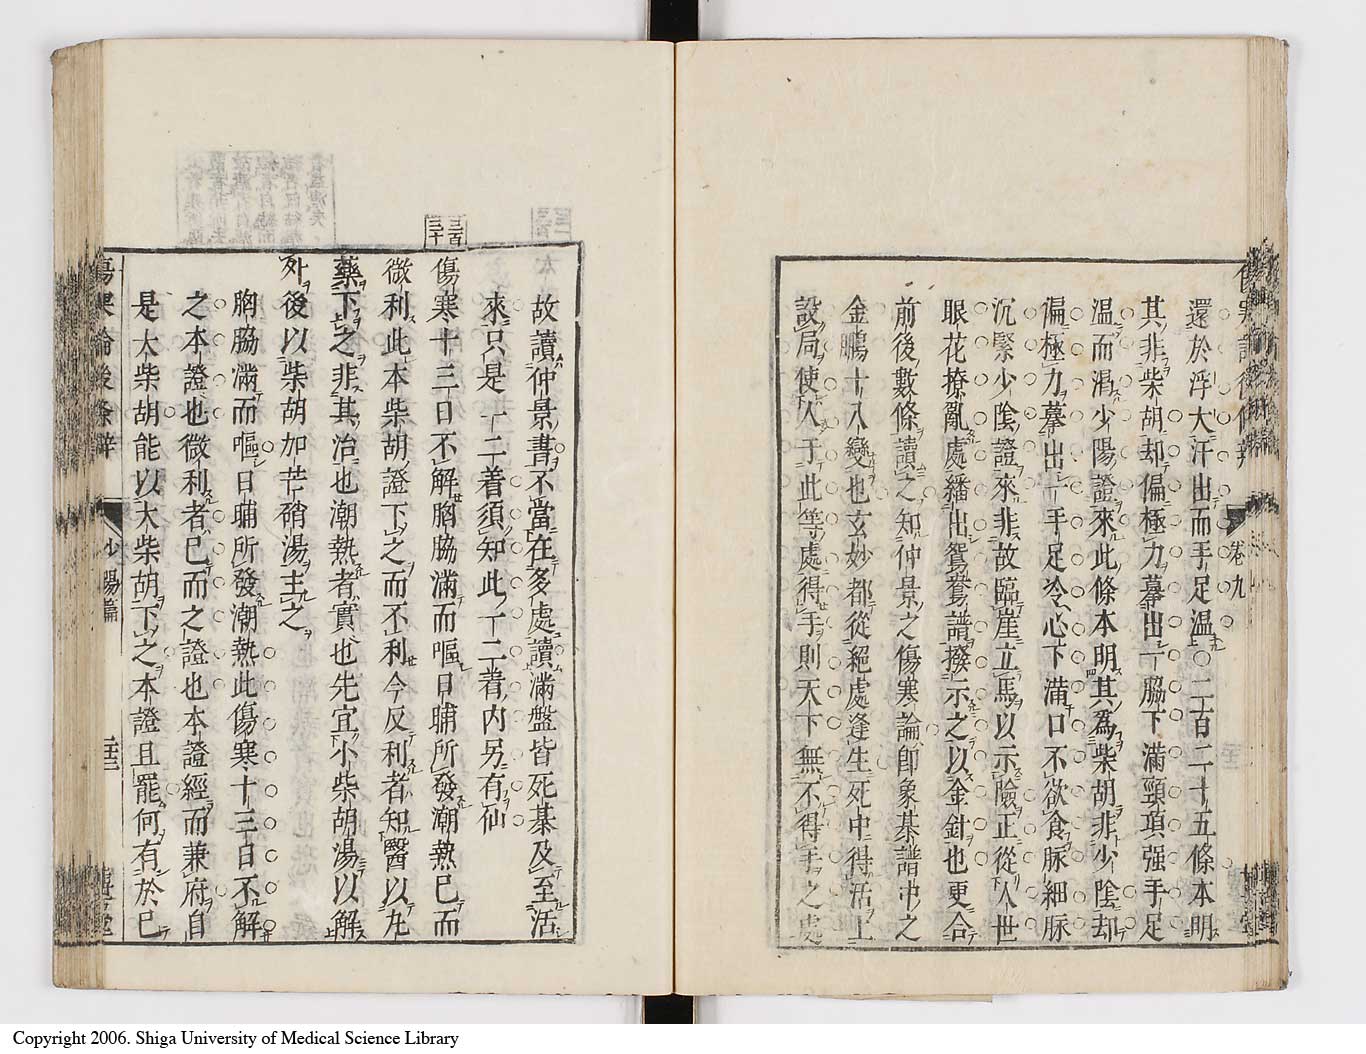 還於浮大汗出而手足温○二百二十五條本明
其非柴胡却偏極力摹出一脇下滿頸項强手足
温而渴少陽證來此條本明其為柴胡非少陰却
偏極力摹出一手足冷心下滿口不欲食脉細脉
沉緊少陰證來非故臨崖立馬以示險正從人世
眼花撩亂處繙出鴛鴦譜撥示之以金針也更合
前後數條讀之知仲景之傷寒論卽象棊譜中之
金鵬十八變也玄妙都從絕處逢生死中得活上
設局使人于此等處得手則天下無不得手之處
卷九
故讀仲景書不當在多處讀滿盤皆死棊及至活
來只是一二着須知此一二着內另有仙
三百三十
傷寒十三日不解胸脇滿而嘔日晡所發潮熱已而
微利此本柴胡證下之而不利今反利者知醫以丸
藥下之非其治也潮熱者實也先宜小柴胡湯以解
外後以柴胡加芒硝湯主之
胸脇滿而嘔日晡所發潮熱此傷寒十三日不解
之本證也微利者已而之證也本證經而兼府自
是大柴胡能以大柴胡下之本證且罷何有於已
傷寒論後條辨 少陽篇
Copyright 2006. Shiga University of Medical Science Library